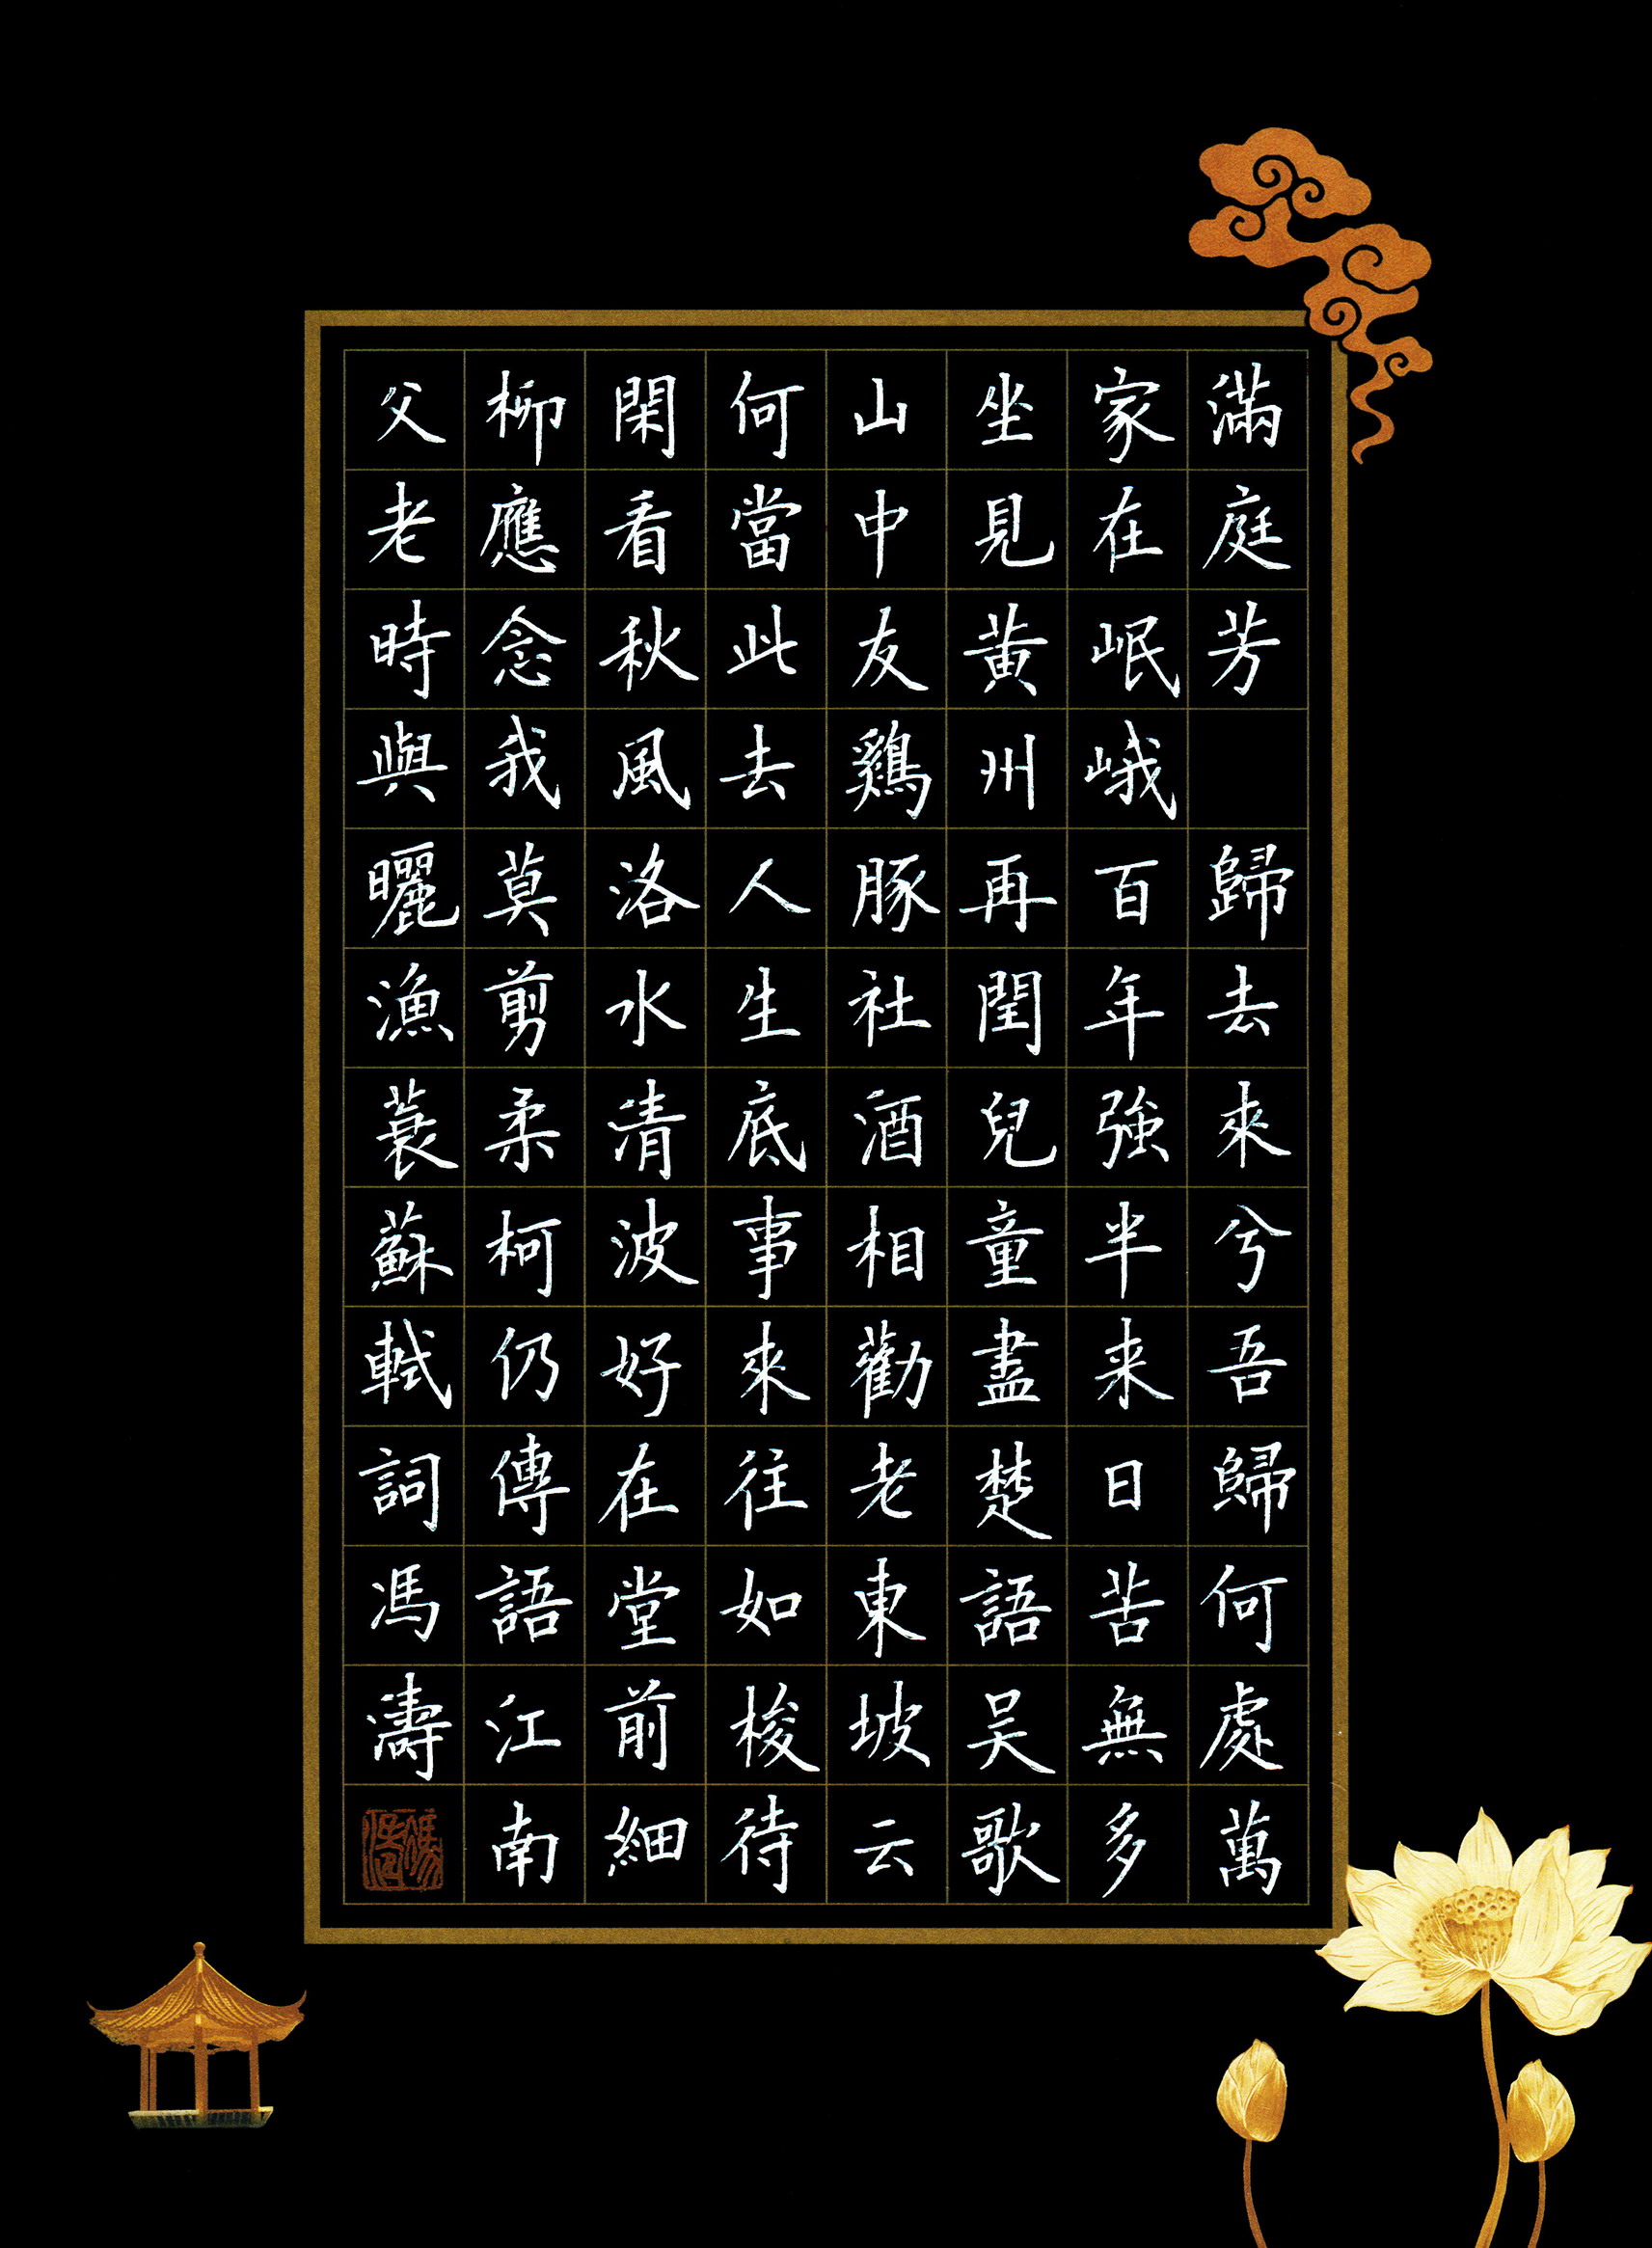 滿庭芳 歸去來兮吾歸何處萬
家在岷峨百年強半来日苦無多
坐見黃州再閏兒童盡楚語吴歌
山中友鷄豚社酒相勸老東坡云
何當此去人生底事來往如梭待
閑看秋風洛水清波好在堂前細
柳應念我莫剪柔柯仍傳語江南
父老時與曬漁蓑蘇軾詞馮濤